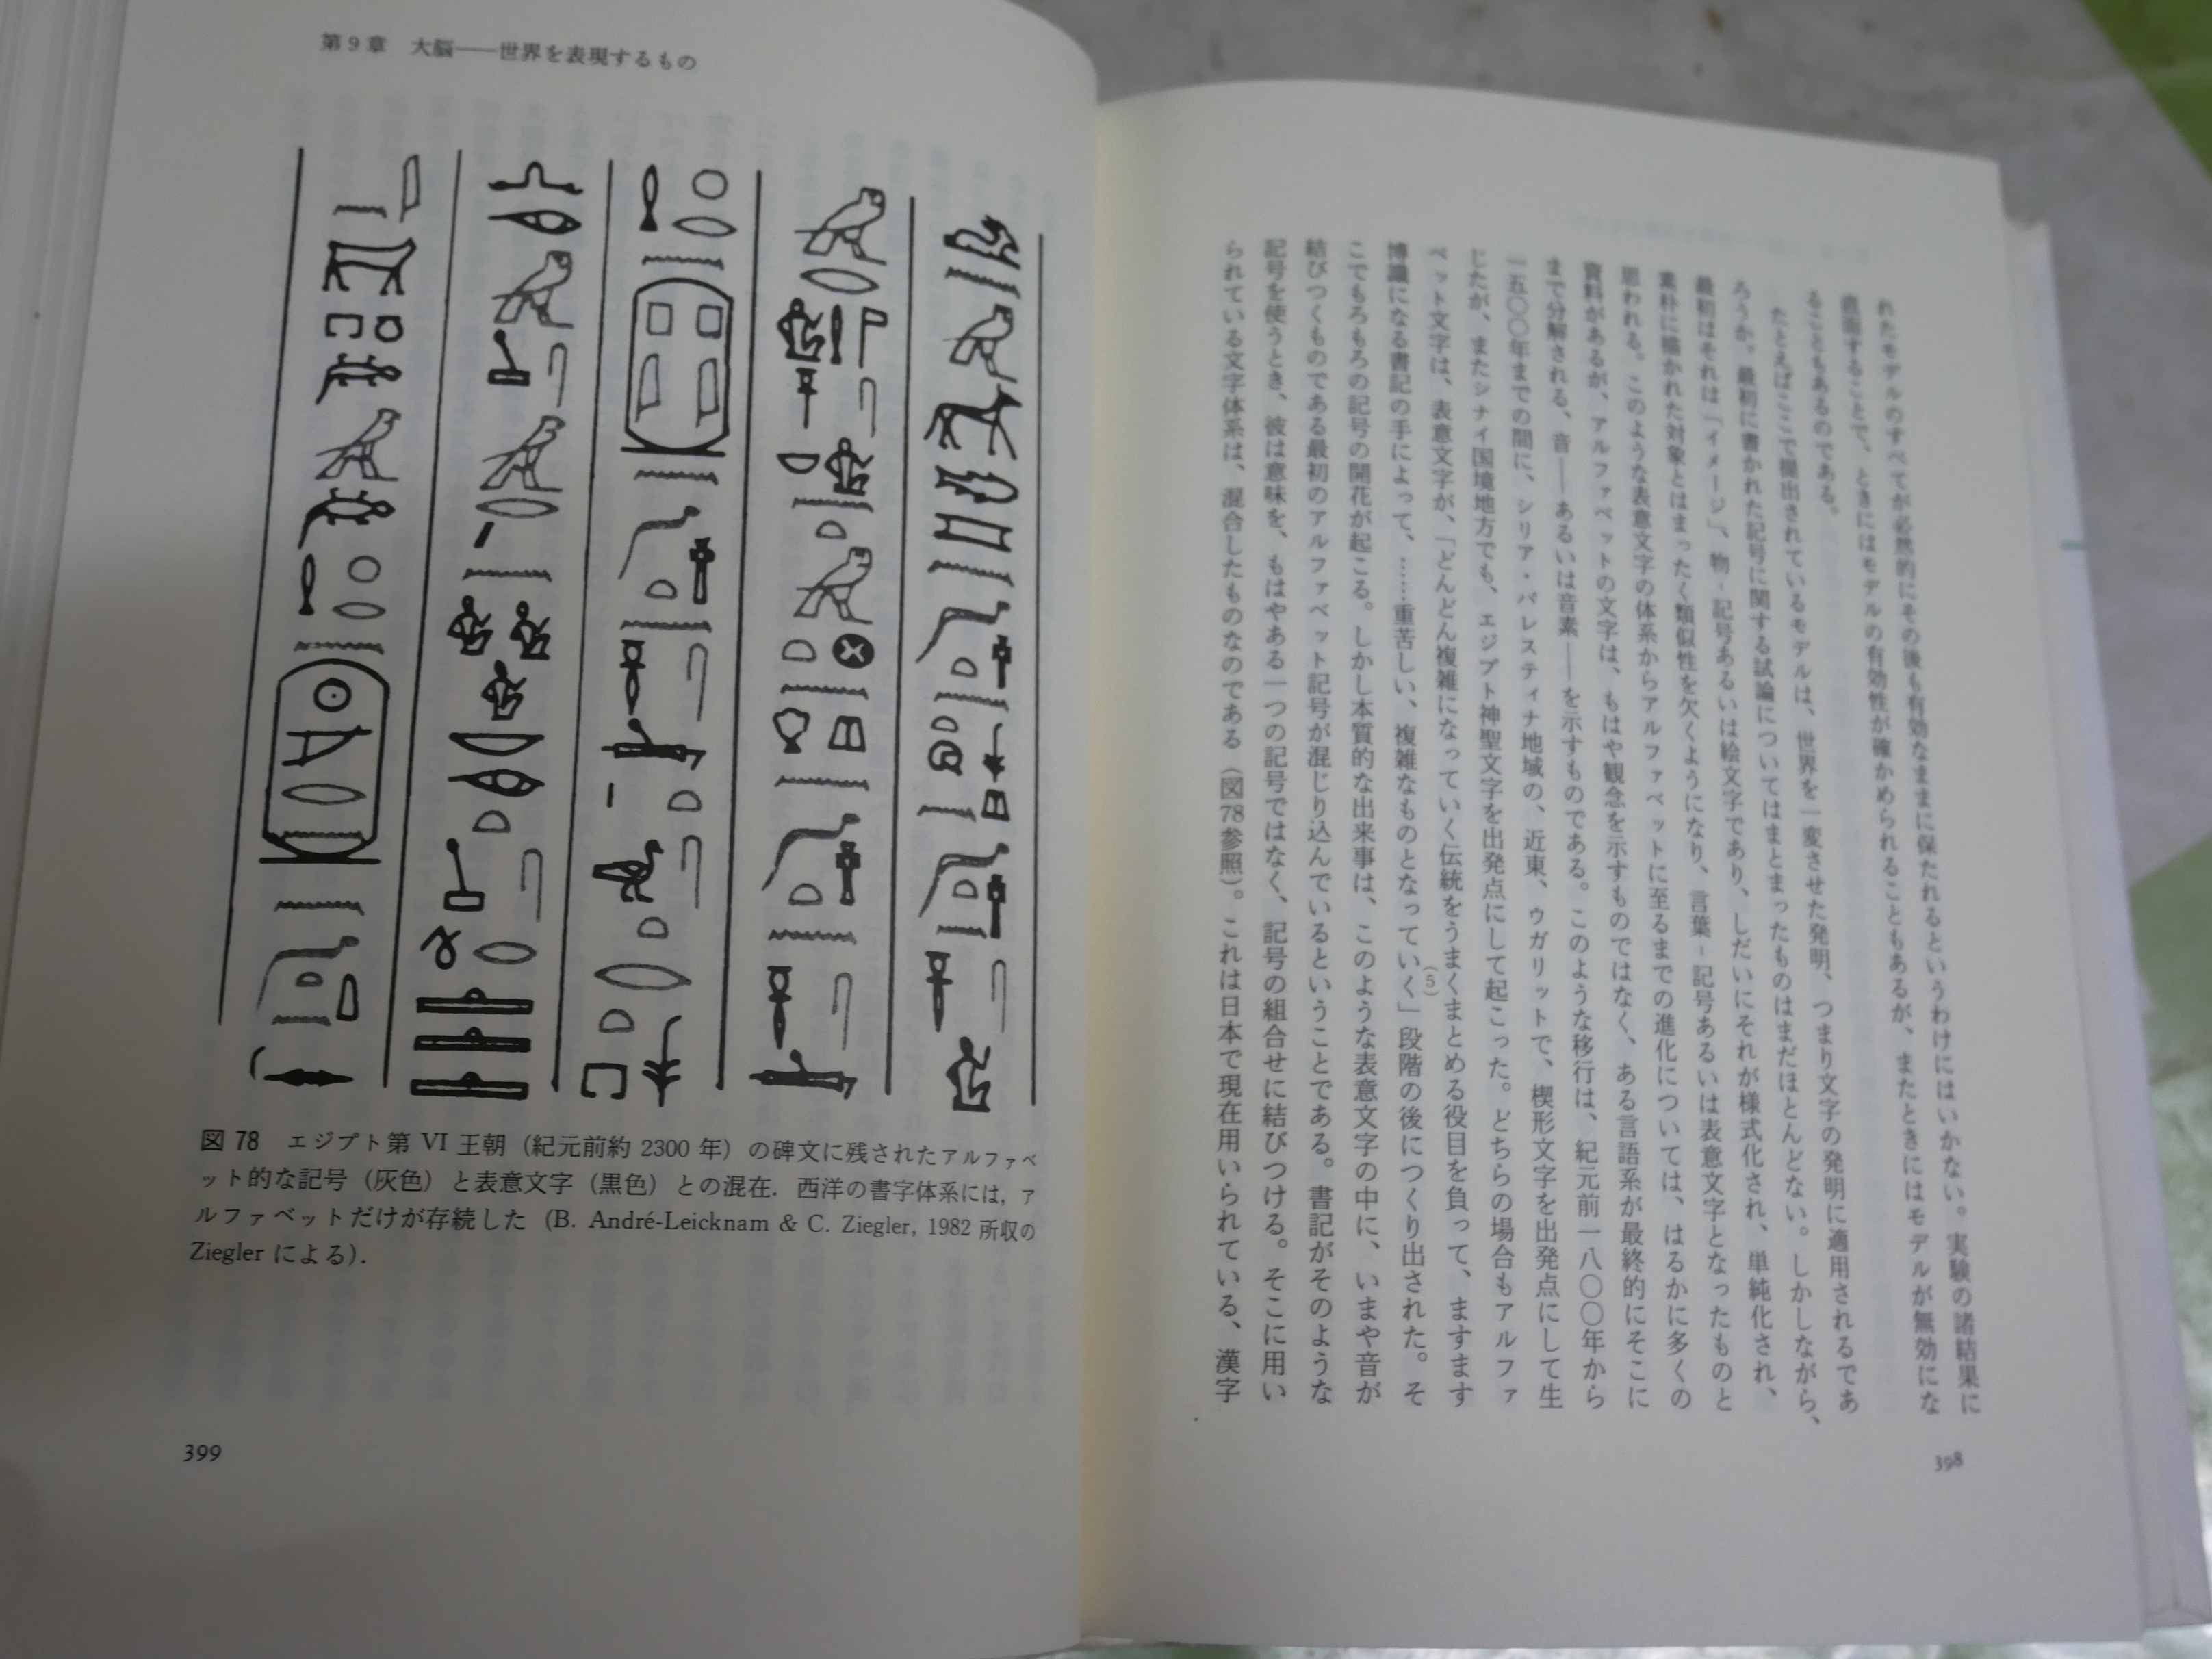 れたモデルのすべてが必然的にその後も有効なままに保たれるというわけにはいかない。実験の諸結果に
直面することで、ときにはモデルの有効性が確かめられることもあるが、またときにはモデルが無効にな
ることもあるのである。
たとえばここで提出されているモデルは、世界を一変させた発明、つまり文字の発明に適用されるであ
ろうか。最初に書かれた記号に関する試論についてはまとまったものはまだほとんどない。しかしながら、
最初はそれは「イメージ」、物-記号あるいは絵文字であり、しだいにそれが様式化され、単純化され、
素朴に描かれた対象とはまったく類似性を欠くようになり、言葉-記号あるいは表意文字となったものと
思われる。このような表意文字の体系からアルファベットに至るまでの進化については、はるかに多くの
資料があるが、アルファベットの文字は、もはや観念を示すものではなく、ある言語系が最終的にそこに
まで分解される、音——あるいは音素——を示すものである。このような移行は、紀元前一八〇〇年から
一五〇〇年までの間に、シリア・パレスティナ地域の、近東、ウガリットで、楔形文字を出発点にして生
じたが、またシナイ国境地方でも、エジプト神聖文字を出発点にして起こった。どちらの場合もアルファ
ベット文字は、表意文字が、「どんどん複雑になっていく伝統をうまくまとめる役目を負って、ますます
博識になる書記の手によって、……重苦しい、複雑なものとなっていく」(5)段階の後につくり出された。そ
こでもろもろの記号の開花が起こる。しかし本質的な出来事は、このような表意文字の中に、いまや音が
結びつくものである最初のアルファベット記号が混じり込んでいるということである。書記がそのような
記号を使うとき、彼は意味を、もはやある一つの記号ではなく、記号の組合せに結びつける。そこに用い
られている文字体系は、混合したものなのである(図78参照)。これは日本で現在用いられている、漢字
398
第9章 大脳——世界を表現するもの
図78 エジプト第VI王朝(紀元前約2300年)の碑文に残されたアルファベ
ット的な記号(灰色)と表意文字(黒色)との混在. 西洋の書字体系には, ア
ルファベットだけが存続した (B. André-Leicknam & C. Ziegler, 1982 所収の
Ziegler による).
399